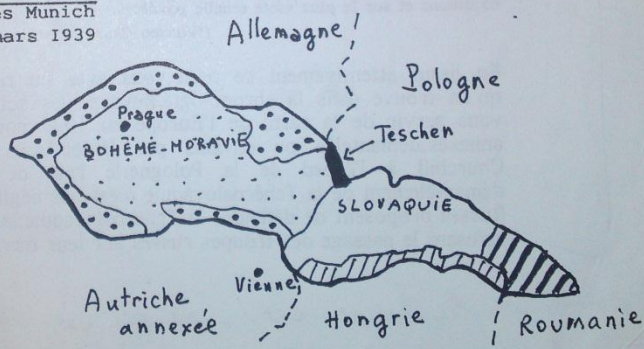 es Munich
mars I939
Allemagne
Pologne
Prague
Teschen
BOHÊME-MORAVIE
SLOVAQUIE
Vienne
Autriche
annexée
Hongrie
Roumanie